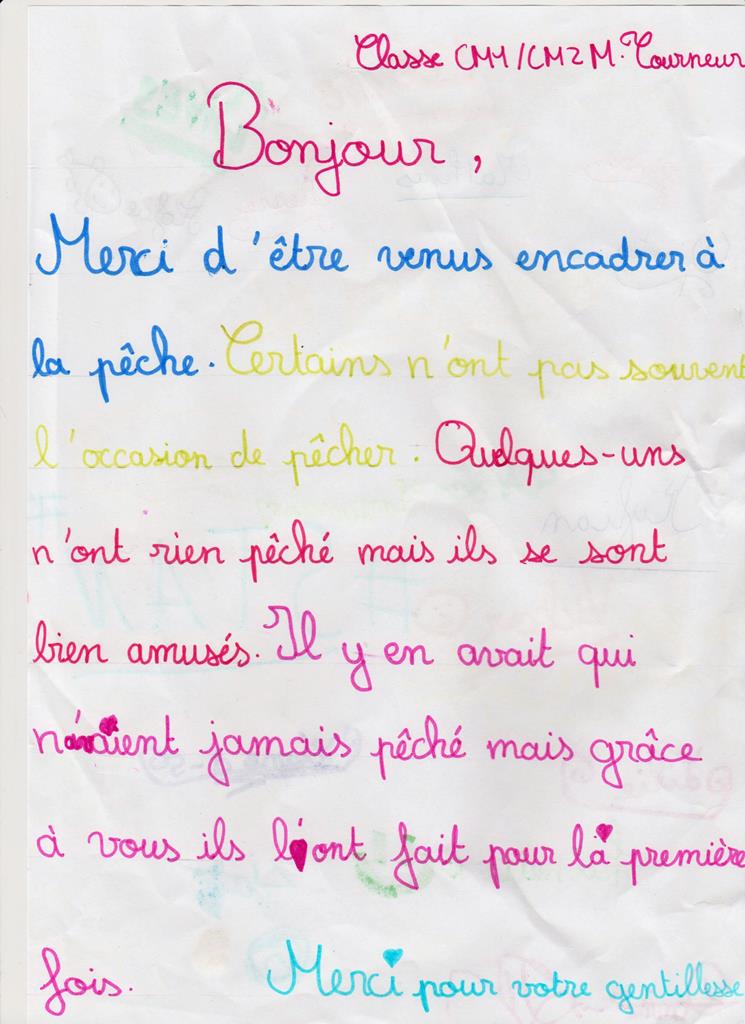 Classe CM1/CM2 M. Tourneur
Bonjour,
Merci d'être venus encadrer à
la pêche. Certains n'ont pas souvent
l'occasion de pêcher. Quelques-uns
n'ont rien pêché mais ils se sont
bien amusés. Il y en avait qui
n'avaient jamais pêché mais grâce
à vous ils l'ont fait pour la première
fois. Merci pour votre gentillesse